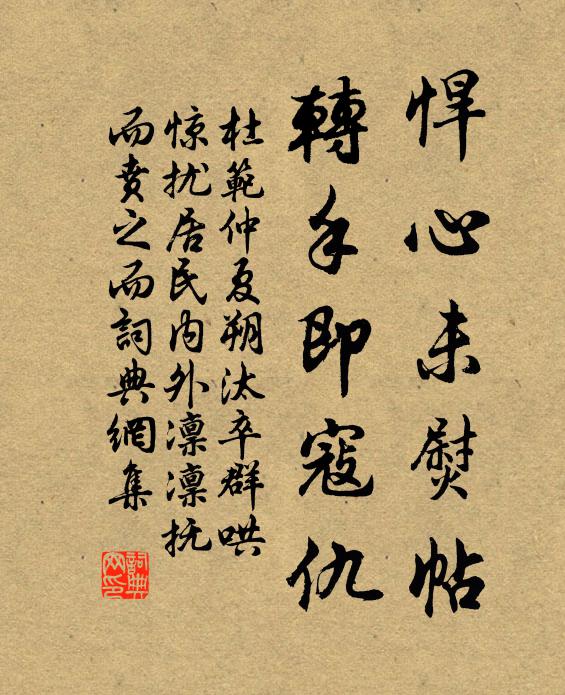 悍心未熨帖
轉手即寇仇
杜範仲夏朔汰卒群哄
惊扰居民内外凛凛抚
而赉之而詞典網集
詞典網印